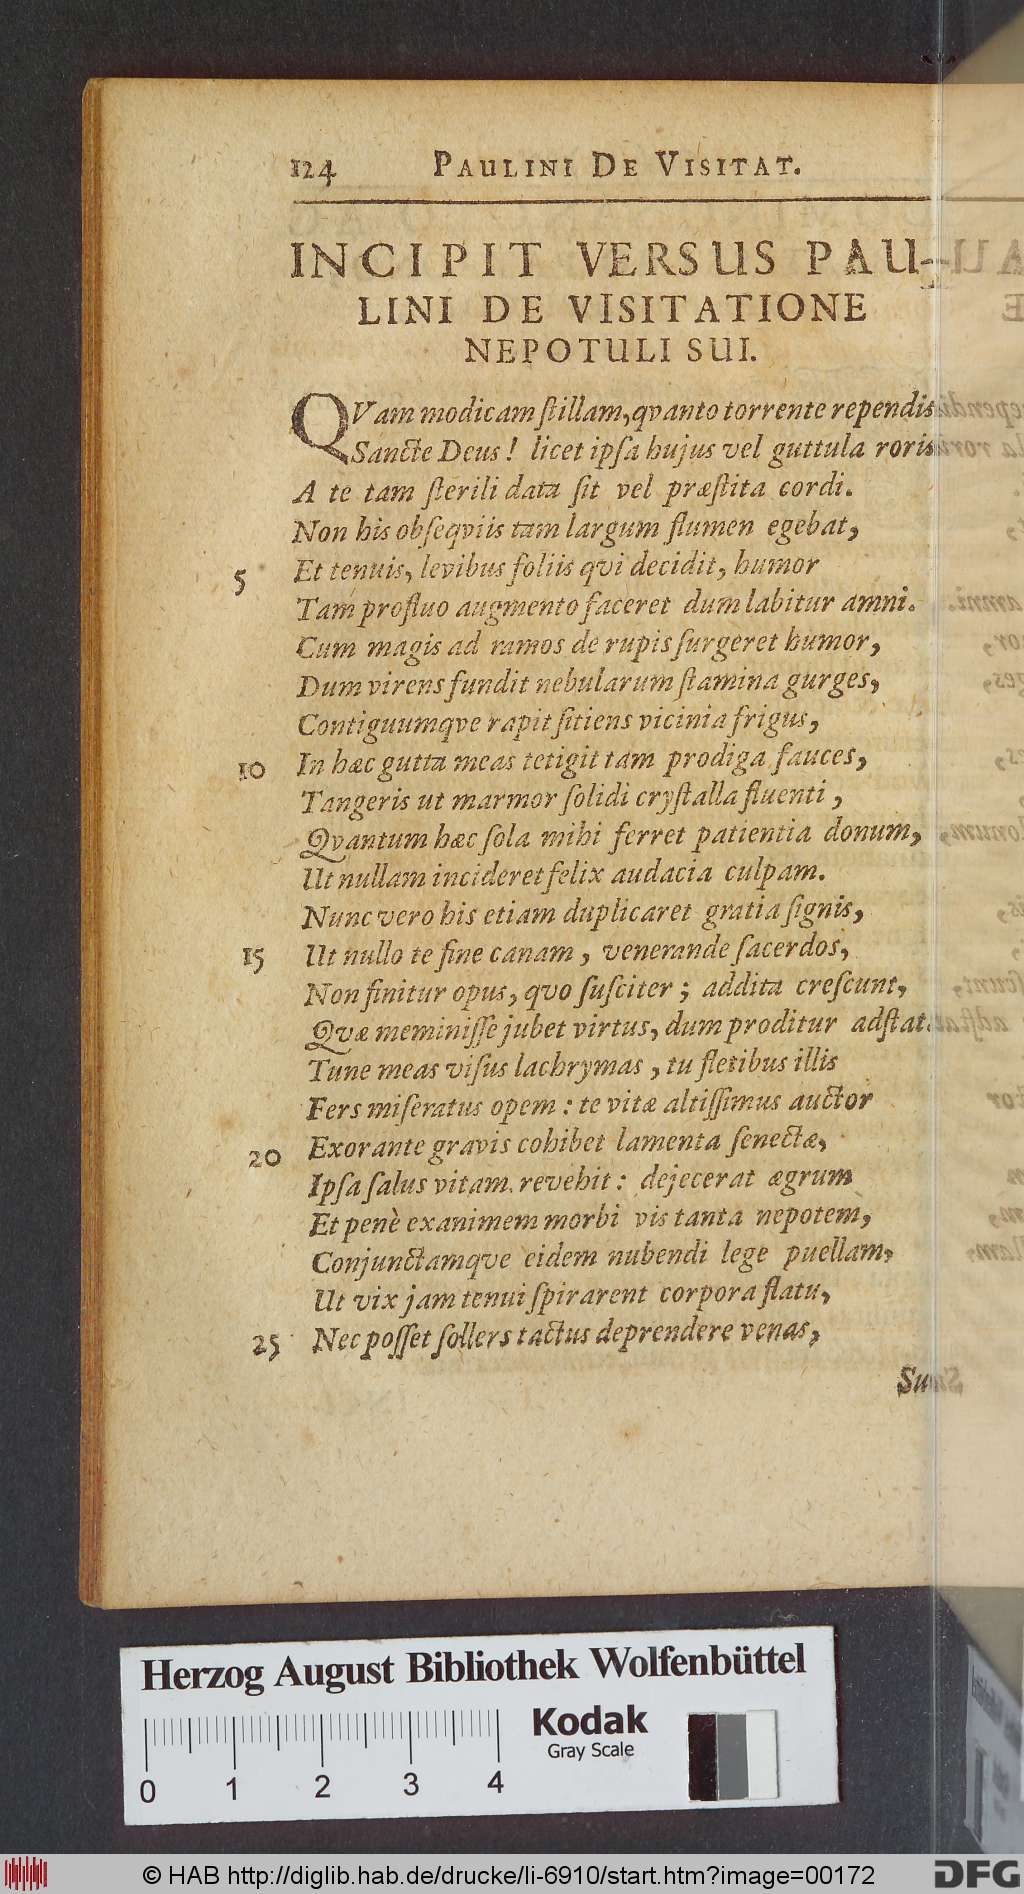 124 PAULINI DE VISITAT.
INCIPIT VERSUS PAU-
LINI DE VISITATIONE
NEPOTULI SUI.
QVam modicam ſtillam, qvanto torrente rependis
Sancte Deus! licet ipſa hujus vel guttula roris
A te tam ſterili data ſit vel præſtita cordi.
Non his obſeqviis tam largum flumen egebat,
5 Et tenuis, levibus foliis qvi decidit, humor
Tam profluo augmento faceret dum labitur amni.
Cum magis ad ramos de rupis ſurgeret humor,
Dum virens fundit nebularum ſtamina gurges,
Contiguumqve rapit ſitiens vicinia frigus,
10 In hæc gutta meas tetigit tam prodiga fauces,
Tangeris ut marmor ſolidi cryſtalla fluenti,
Qvantum hæc ſola mihi ferret patientia donum,
Ut nullam incideret felix audacia culpam.
Nunc vero his etiam duplicaret gratia ſignis,
15 Ut nullo te fine canam, venerande ſacerdos,
Non finitur opus, qvo ſuſciter; addita creſcunt,
Qvæ meminiſſe jubet virtus, dum proditur adſtat.
Tune meas viſus lachrymas, tu fletibus illis
Fers miſeratus opem: te vitæ altiſſimus auctor
20 Exorante gravis cohibet lamenta ſenectæ,
Ipſa ſalus vitam revehit: dejecerat ægrum
Et penè exanimem morbi vis tanta nepotem,
Conjunctamqve eidem nubendi lege puellam,
Ut vix jam tenui ſpirarent corpora flatu,
25 Nec poſſet ſollers tactus deprendere venas,
Herzog August Bibliothek Wolfenbüttel
Kodak
Gray Scale
0 1 2 3 4
© HAB http://diglib.hab.de/drucke/li-6910/start.htm?image=00172
DFG